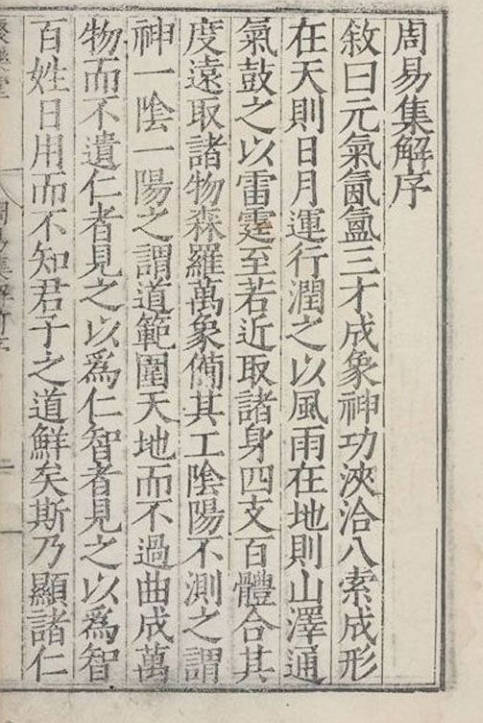 周易集解序
敘曰元氣氤氳三才成象神功浹洽八索成形
在天則日月運行潤之以風雨在地則山澤通
氣鼓之以雷霆至若近取諸身四支百體合其
度遠取諸物森羅萬象備其工陰陽不測之謂
神一陰一陽之謂道範圍天地而不過曲成萬
物而不遺仁者見之以爲仁智者見之以爲智
百姓日用而不知君子之道鮮矣斯乃顯諸仁